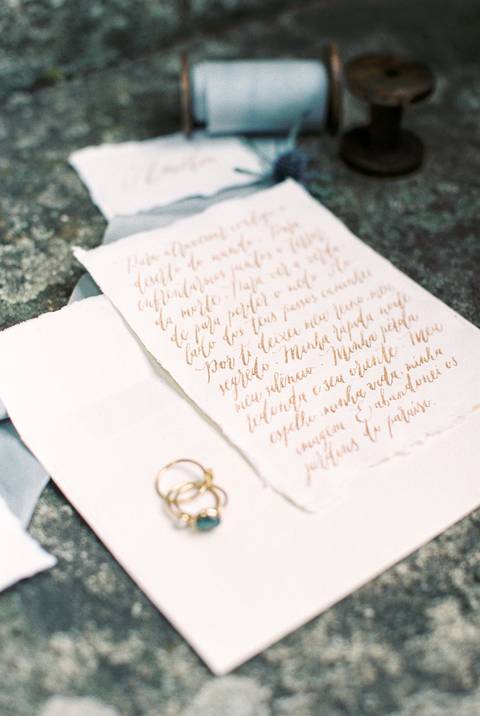 Para atravessar contigo o
deserto do mundo. Para
enfrentarmos juntos o terror
da morte. Para ver a verda
de para perder o medo. Ao
lado dos teus passos caminhei
Por ti deixei meu reino meu
segredo. Minha rápida noite
meu silêncio. Minha pérola
redonda e seu oriente. Meu
espelho minha vida minha
imagem. E abandonei os
jardins do paraíso.